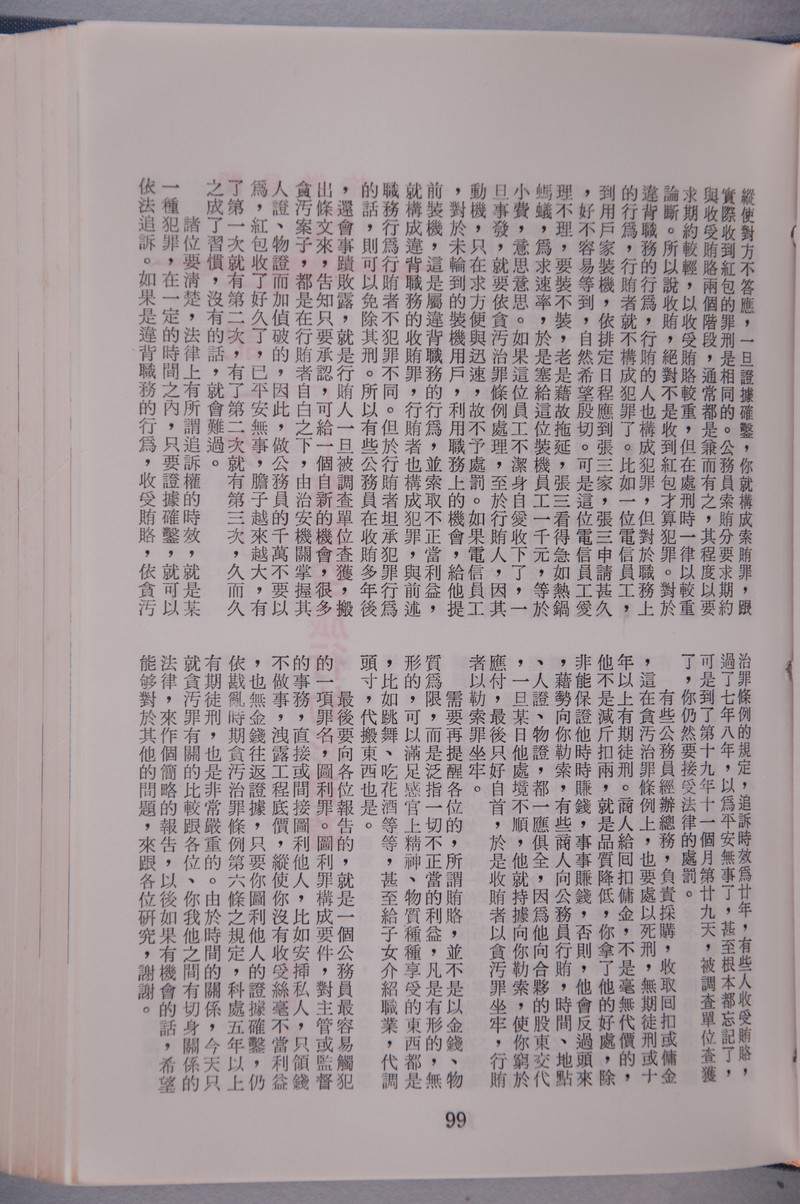 縱使對方不答應，一旦證據確鑿，你就構成索賄罪，跟
實際收到紅包的罪刑是相同的。公務員索賄分要求期約
與收受賄賂兩個階段，通常都是兼而有之，其程度以要
求期約較輕，以收受賄賂較重，但在處刑時一律以較重
論斷。所以說收賄，絕對不是收到紅包才算犯罪。對於
違背職務的行為，行賄的人也構成犯罪，但對於職務上
的行為，行賄者就不構成犯罪了。比如一位電信員工，
到用戶家裝機，依排定日程應到張三家，張三申請甚久
，好不容易等到，自然希望殷切。可是這位電信員工愛
理不理，要裝不裝，老是藉故拖延，張三看得急如熱鍋
螞蟻，為求速率，於是塞給這位裝機員工一千元，等於
小費，意思意思。如果這位員工不潔身自愛收下了，一
旦事發，就要依貪汚治罪條例處理，至於行賄人，因其
動機，只在求方便與迅速，故不予處罰。如果電信員工
，對於未輪到的裝機用戶，利用職務上的機會，給他提
前裝機，這是屬違背職務的行為，並索取不正當利益，
就構成違背職務的收賄罪，行賄者也構成犯罪，與前述
職務行為行賄者不犯罪不同。但於行賄者坦承犯罪行為
的話，則可以免除其刑。所以有些公務員在收賄多年後
，還會事蹟敗露，就是行賄人一旦被調查單位查獲，搬
出條文來，告知只要承認，可給一個自新的機會，很多
貪汚案子，都是在行賄者自白之下，由治安機關掌握其
人證、物證而加偵破的，因此，做公務員的千萬不要以
為，紅包收了好久了，已平安無事，膽子越來越大，有
了第一次就有第二次，有了第二次就有第三次，久而久
之成了習慣，沒有的話，就會難過。
諸位要清楚，法律上有所謂追訴權的時效，就是某
一種犯罪，在一定的時間之內，只要證據確鑿，就可以
依法追訴。如果是違背職務的行為，收受賄賂，依貪汚
治罪條例的規定，追訴時效為廿年，有些人收受賄賂，
過了七年八年，以為平安無事了，甚至根本都忘記了，
可是到了第十九年十一個月第廿九天，被調查單位查獲
了，你仍然要接受法律的處罰。
有些公務員經辦總務，負責採購，收取回扣或傭金
，這在貪汚治罪條例上，也要處以死刑，無期徒刑或十
年以上有期徒刑。商人給回扣傭金，不是毫無代價的，
他不是減斤扣兩，就是品質降低，你拿了他的好處，除
非能保證他時時賺錢，事事賺錢，否則，他會反過頭來
，藉勢向你勒索，有些商人向公務員行賄，時間、地點
、人證、物證，都一應俱全，因為他向合夥的股東交代
，一旦某日他處境不順，他就持據向你勒索，使你窮於
應付，最後只好自首，於是收賄者以貪汚罪坐牢，行賄
者以勒索罪坐牢。
需要再提醒各位的，所謂賄賂，並不是以金錢、物
質為限，而是泛指一切不正當的利益，凡是有形的，無
形的，可以滿足感官上精神、物質種種享受的東西都是
，比如跳舞、吃花酒等等，甚至給子女介紹職業，代調
頭寸，代搬東西也是。
最後要向各位報告的，就是一個公務員最容易觸犯
的一項罪名，圖利罪。圖利罪構成要件，對主管或監督
的事務，直接或間接圖利他人，比如安揷私人，只領錢
不做事，洩露工程底價，縱使你沒有收受絲毫不當利益
，也無金錢往返證據，只要你圖利他人的證據確鑿，仍
依戡亂時期貪汚治罪條例第六條之規定，科處五年以上
有期徒刑，也是非常嚴重的。由於時間的關係，今天只
就貪汚罪有關的比較跟各位、你我他之間有切身關係的
法律，來作個簡略的報告，以後如果有機會的話，希望
能够對於其他的問題，來跟各位研究，謝謝。
99